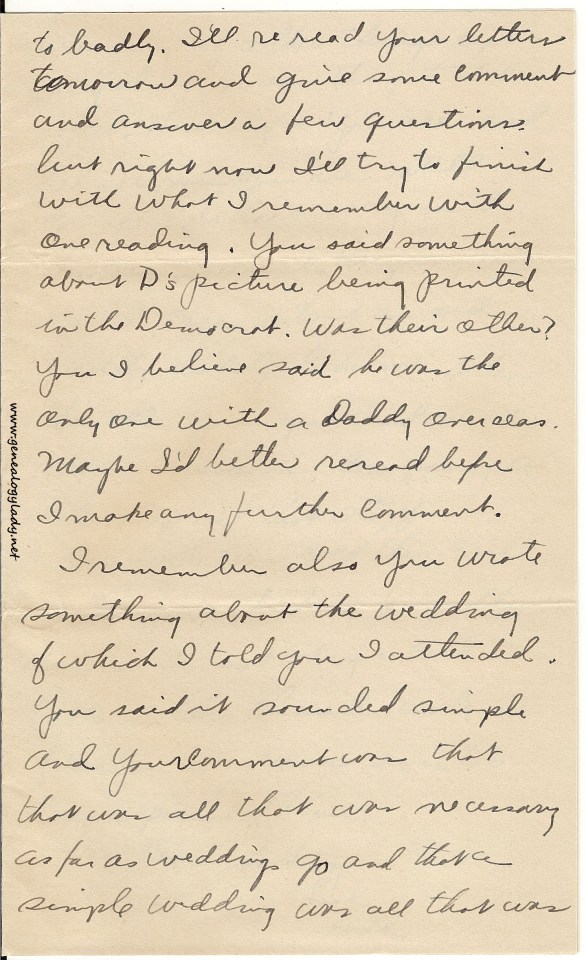 to badly. I'll re read your letters
tomorrow and give some comment
and answer a few questions.
but right now I'll try to finish
with what I remember with
one reading. You said something
about D's picture being printed
in the Democrat. Was their other?
You I believe said he was the
only one with a Daddy overseas.
Maybe I'd better reread before
I make any further comment.
I remember also you wrote
something about the wedding
of which I told you I attended.
You said it sounded simple
and your comment was that
that was all that was necessary
as far as weddings go and that a
simple wedding was all that was
www.genealogylady.net